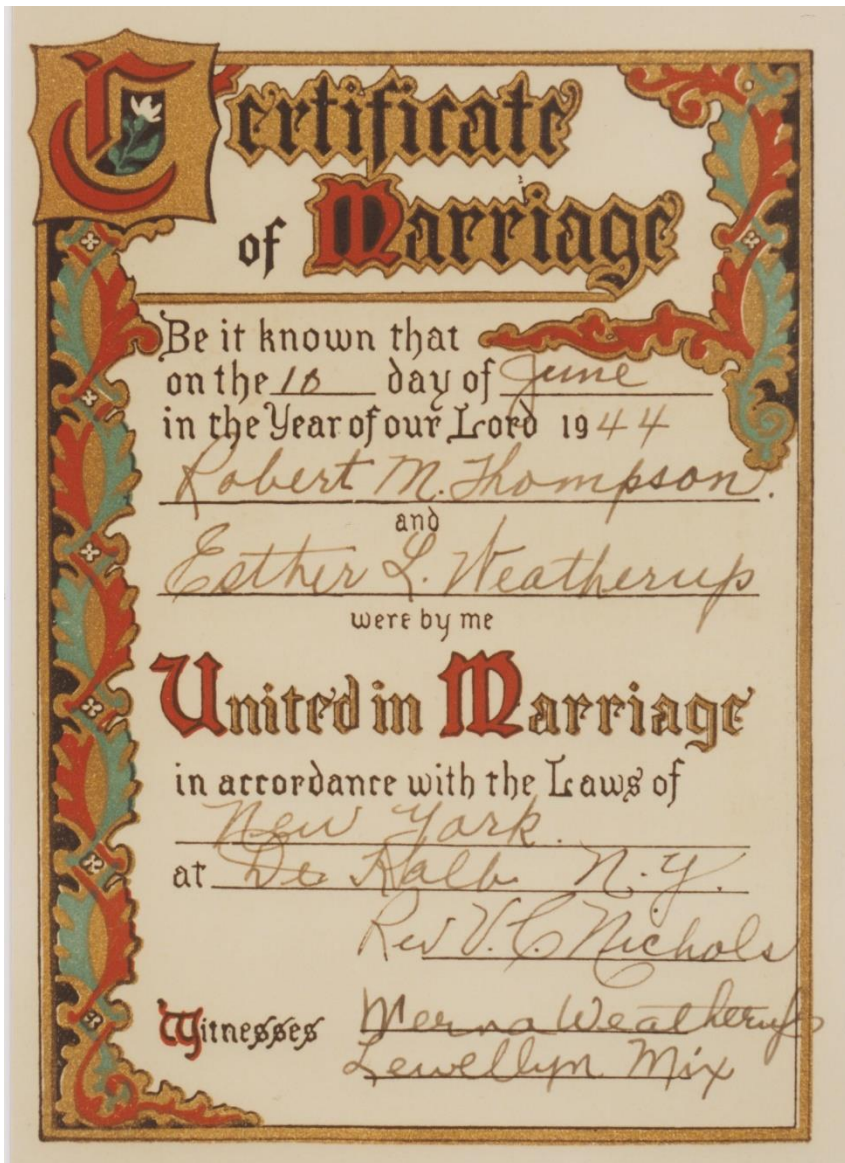 Certificate
of Marriage
Be it known that
on the 10 day of June
in the Year of our Lord 1944
Robert M. Thompson.
and
Esther L. Weatherup
were by me
United in Marriage
in accordance with the Laws of
New York.
at De Kalb N.Y.
Rev V. C. Nichols
Witnesses Merna Weatherup
Lewellyn Mix